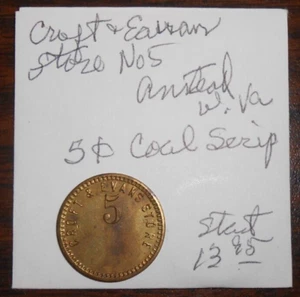 Croft & Eavans
Store No5
Ansted
W. Va
5¢ Coal Scrip
CROFT & EVANS STORE
5
Start
13 95